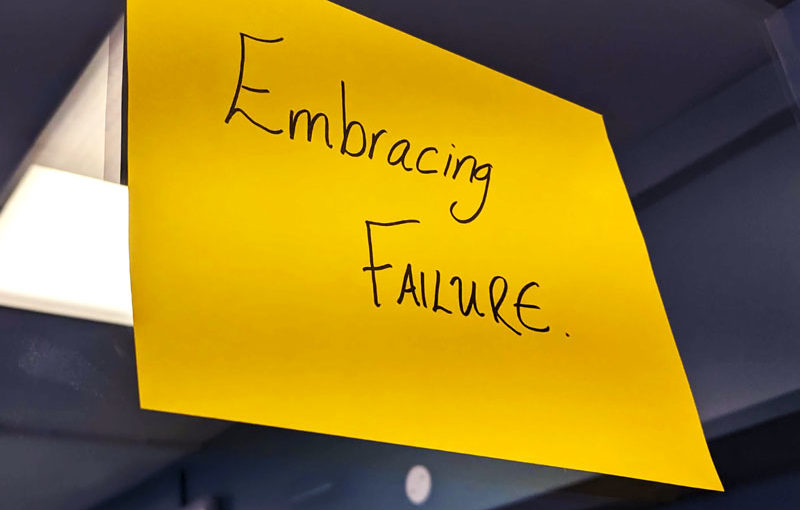 Embracing
FAILURE.